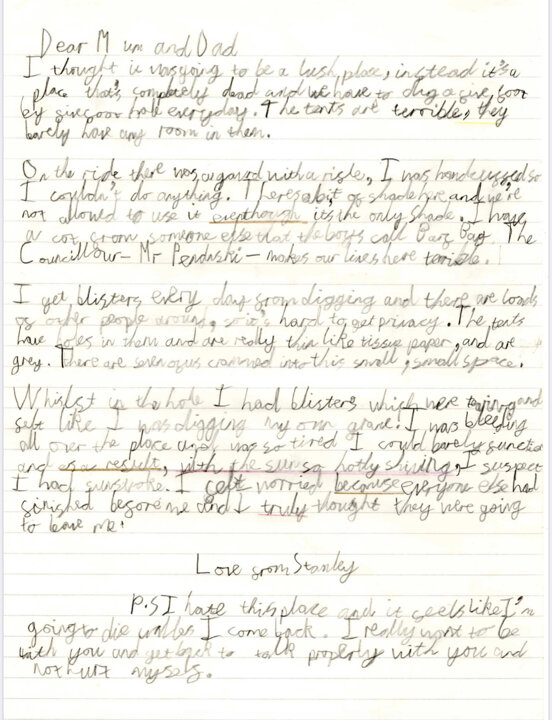 Dear Mum and Dad
I thought it was going to be a lush place, instead it's a
place that's completely dead and we have to dig a five foot
by five foot hole everyday. The tents are terrible, they
barely have any room in them.
On the ride there was a guard with a rifle, I was handcuffed so
I couldn't do anything. Theres a bit of shade here and we're
not allowed to use it eventhough its the only shade. I have
a cot from someone else that the boys call Barf Bag. The
Councillour - Mr Pendnski - makes our lives here terible.
I get blisters every day from digging and there are loads
of other people around, so it's hard to get privacy. The tents
have holes in them and are really thin like tissue paper, and are
grey. There are seven of us crammed into this small, small space.
Whilst in the hole I had blisters which were and
felt like I was digging my own grave! I was bleeding
all over the place and was so tired I could barely function
and as a result, with the sun so hotly shining, I suspect
I had sunstroke. I felt worried because everyone else had
finished before me and I truly thought they were going
to leave me!
Love from Stanley
P.S I hate this place and it feels like I'm
going to die I come back. I really want to be
with you and get back to talk properly with you and
not hurt myself.